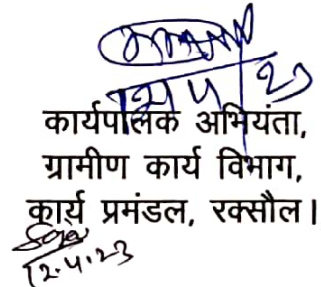 कार्यपालक अभियंता,
ग्रामीण कार्य विभाग,
कार्य प्रमंडल, रक्सौल।
12.4.23